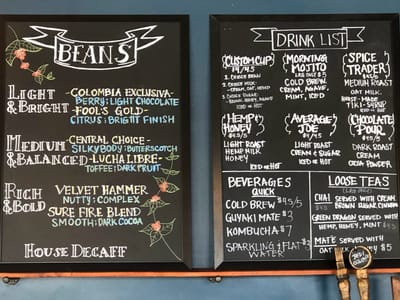 BEANS
LIGHT & BRIGHT
-COLOMBIA EXCLUSIVA-
BERRY: LIGHT CHOCOLATE
-FOOL'S GOLD-
CITRUS: BRIGHT FINISH
MEDIUM & BALANCED
CENTRAL CHOICE-
SILKY BODY: BUTTERSCOTCH
-LUCHA LIBRE-
TOFFEE: DARK FRUIT
RICH & BOLD
VELVET HAMMER
NUTTY: COMPLEX
SURE FIRE BLEND
SMOOTH: DARK COCOA
HOUSE DECAFF
DRINK LIST
{CUSTOM CUP}
{HEMP & HONEY}
LIGHT ROAST
HEMP MILK
HONEY
ICED OR HOT
{MORNING MOJITO}
COLD BREW
CREAM, AGAVE,
MINT, ICED
{AVERAGE JOE}
LIGHT ROAST
CREAM & SUGAR
ICED OR HOT
{SPICE TRADER}
MEDIUM ROAST
OAT MILK,
ICED OR HOT
{CHOCOLATE POUR}
DARK ROAST
CREAM
COCOA POWDER
BEVERAGES
QUICK
COLD BREW $4.5/5
GUYAKI MATE $3
KOMBUCHA $7
SPARKLING & FLAT WATER $2
LOOSE TEAS
CHAI SERVED WITH CREAM,
BROWN SUGAR, CINNAMON
GREEN DRAGON SERVED WITH
HEMP, HONEY, MINT
MATE SERVED WITH